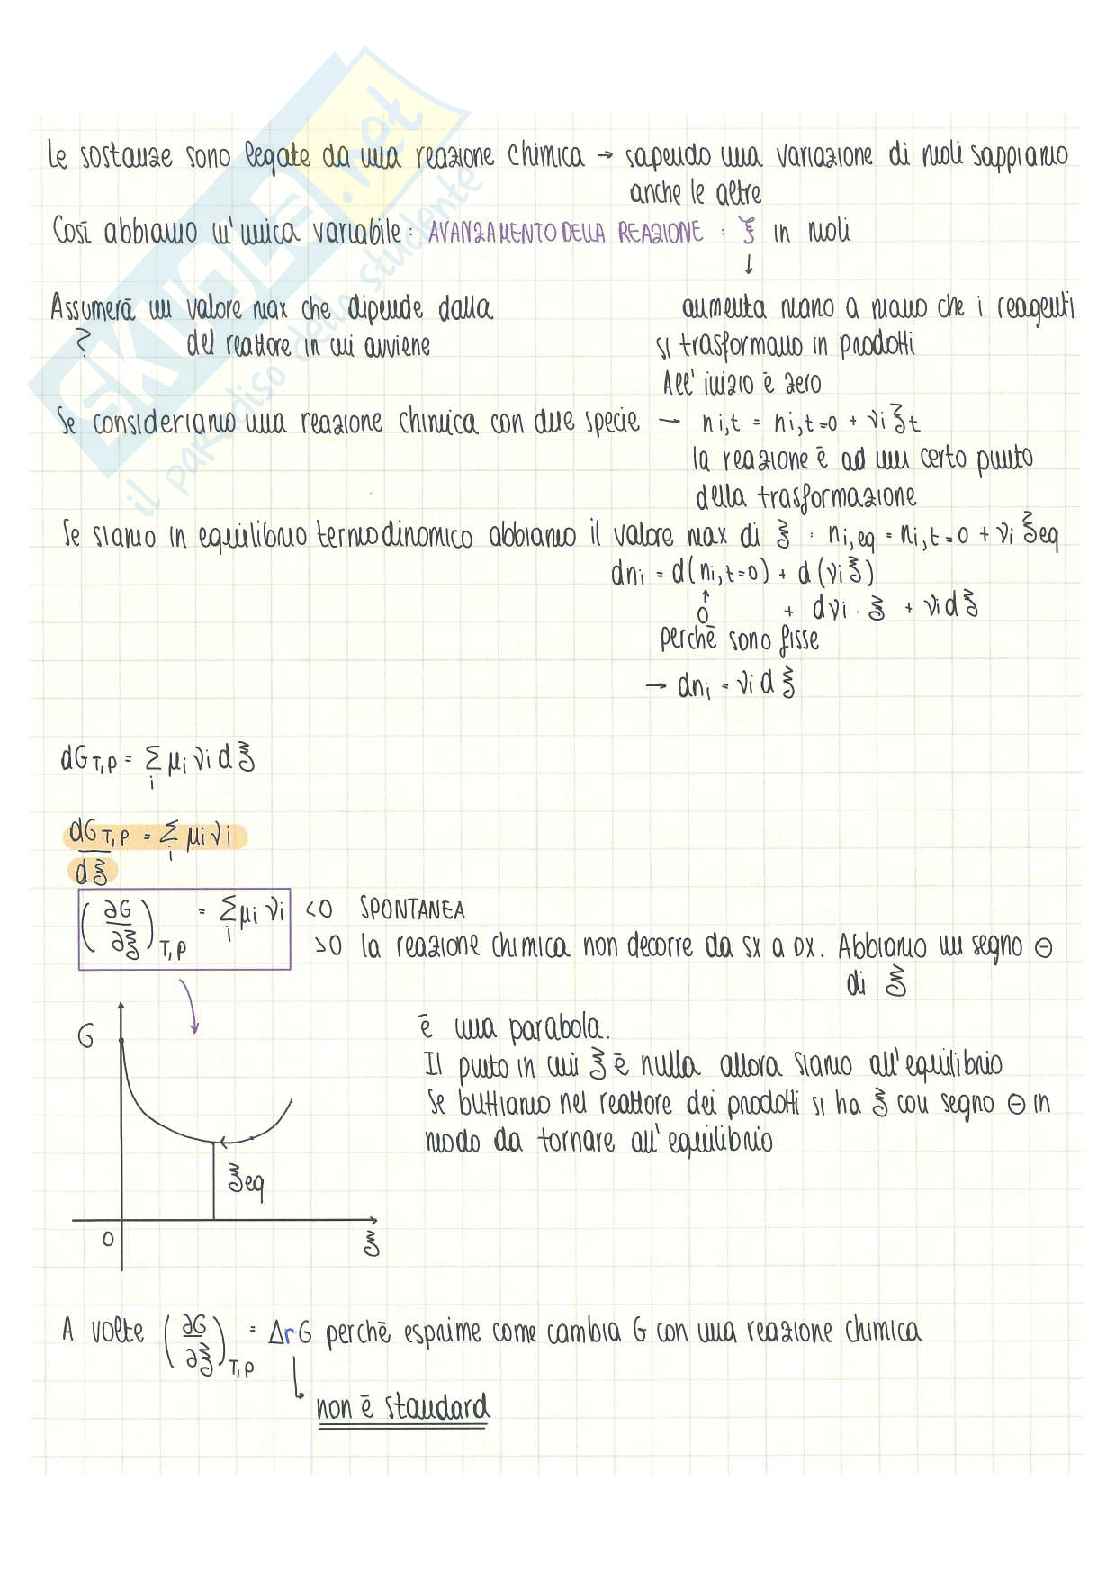 SKUOLA.net
il paradiso dello studente
Le sostanze sono legate da una reazione chimica → sapendo una variazione di moli sappiamo
anche le altre
Così abbiamo un'unica variabile: AVANZAMENTO DELLA REAZIONE : ξ in moli
↓
Assumerà un valore max che dipende dalla
aumenta mano a mano che i reagenti
? del reattore in cui avviene
si trasformano in prodotti
All'inizio è zero
Se consideriamo una reazione chimica con due specie → ni,t = ni,t=0 + νi ξt
la reazione è ad un certo punto
della trasformazione
Se siamo in equilibrio termodinamico abbiamo il valore max di ξ : ni,eq = ni,t=0 + νi ξeq
dni = d(ni,t=0) + d(νiξ)
↑
0 + dνi · ξ + νi dξ
perché sono fisse
→ dni = νi dξ
dG T,P = Σi μi νi dξ
dG T,P = Σi μi νi
dξ
(∂G/∂ξ)T,P = Σi μi νi <0 SPONTANEA
>0 la reazione chimica non decorre da sx a dx. Abbiamo un segno ⊖
di ξ
G
è una parabola.
Il punto in cui ξ è nulla allora siamo all'equilibrio
Se buttiamo nel reattore dei prodotti si ha ξ con segno ⊖ in
modo da tornare all'equilibrio
ξeq
0
ξ
A volte (∂G/∂ξ)T,P = ΔrG perché esprime come cambia G con una reazione chimica
non è standard